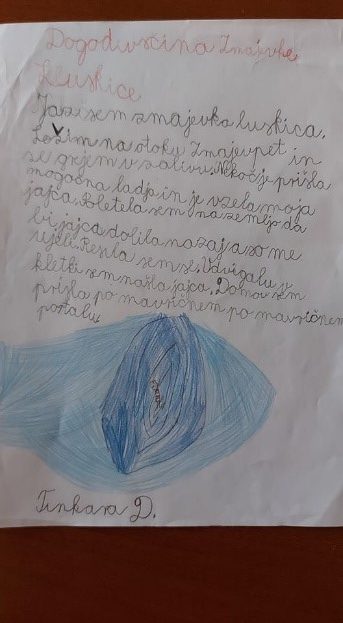 Dogodivščina Zmajevke
Luskice
Jaz sem zmajevka luskica.
Ležim na otoku Zmajevpet in
se grejem v zalivu. Nekoč je prišla
mogočna ladja in je vzela moja
jajca. Poletela sem na zemljo da
bi jajca dobila nazaj a so me
ujeli. Rešila sem se. V dvigalu v
kletki sem našla jajca. Domov sem
prišla po mavričnem po mavričnem
portalu.
Tinkara D.